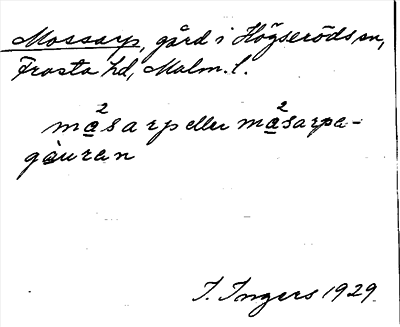 Mossarp, gård i Högseröds sn,
Frosta hd, Malm. l.
må²sarp eller må²sarpa-
gàuran
I. Ingers 1929.